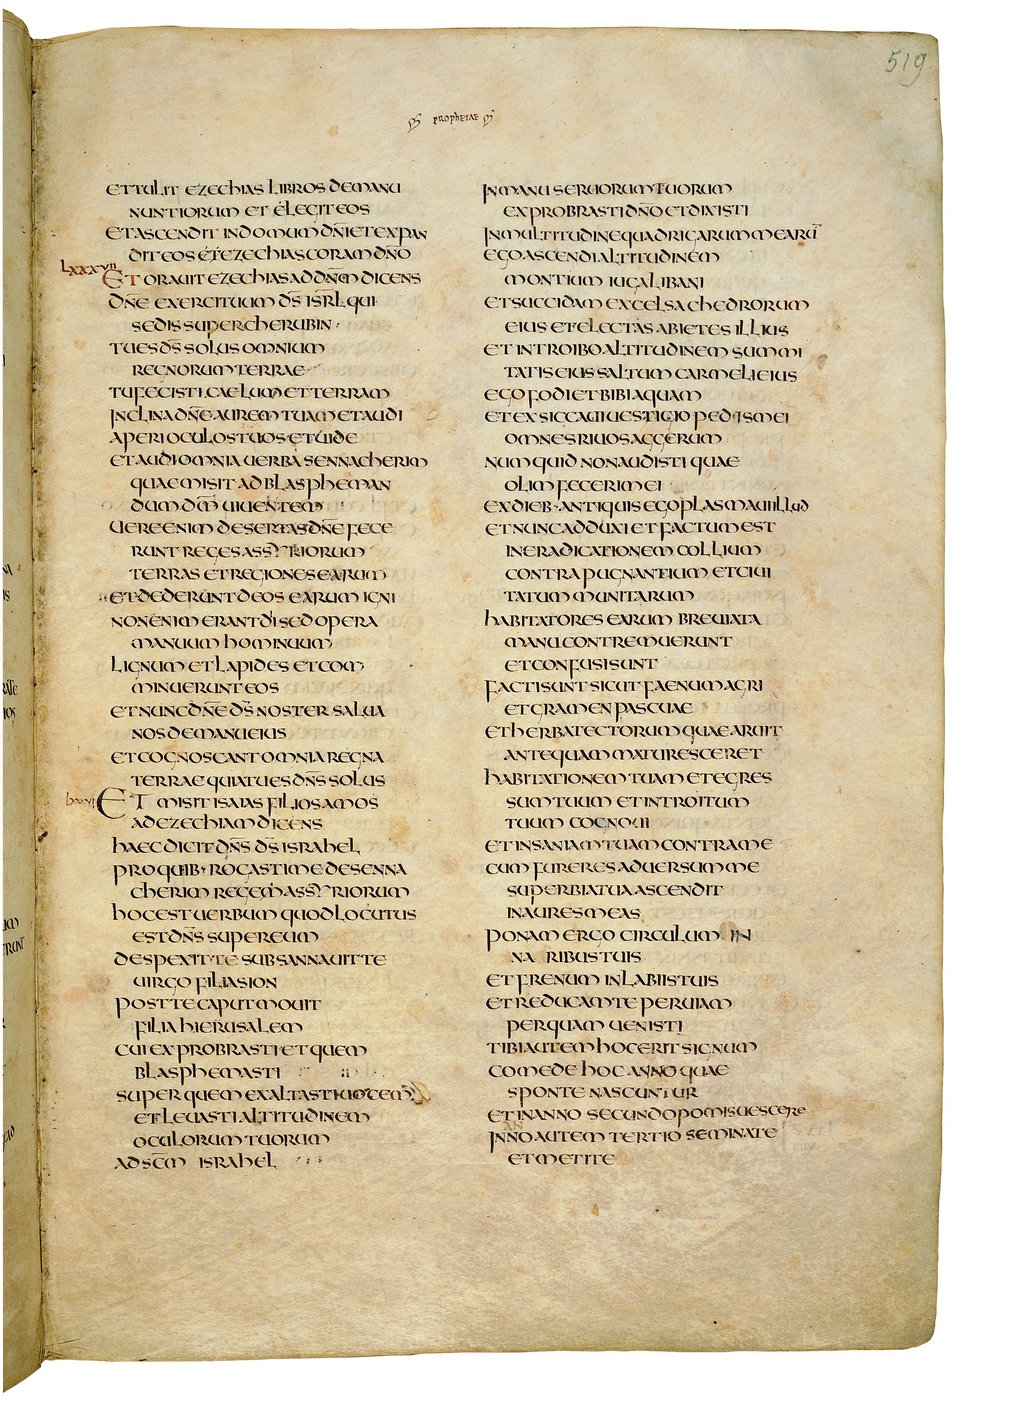 519
PROPHETAE
ET TULIT EZECHIAS LIBROS DE MANU
NUNTIORUM ET ELEGIT EOS
ET ASCENDIT IN DOMUM DN̄I ET EXPAN
DIT EOS ET EZECHIAS CORAM DN̄O
LXXXVII
ET ORAUIT EZECHIAS AD DN̄M DICENS
DN̄E EXERCITUUM D̄S ISRL QUI
SEDIS SUPER CHERUBIN
TU ES D̄S SOLUS OMNIUM
REGNORUM TERRAE
TU FECISTI CAELUM ET TERRAM
INCLINA DN̄E AUREM TUAM ET AUDI
APERI OCULOS TUOS ET UIDE
ET AUDI OMNIA UERBA SENNACHERIM
QUAE MISIT AD BLASPHEMAN
DUM D̄M UIUENTEM
UERE ENIM DESERTAS DN̄E FECE
RUNT REGES ASSYRIORUM
TERRAS ET REGIONES EARUM
ET DEDERUNT DEOS EARUM IGNI
NON ENIM ERANT DI SED OPERA
MANUUM HOMINUUM
LIGNUM ET LAPIDES ET COM
MINUERUNT EOS
ET NUNC DN̄E D̄S NOSTER SALUA
NOS DE MANU EIUS
ET COGNOSCANT OMNIA REGNA
TERRAE QUIA TU ES DN̄S SOLUS
ET MISIT ISAIAS FILIOS AMOS
AD EZECHIAM DICENS
HAEC DICIT DN̄S D̄S ISRAHEL
PRO QUIB· ROGASTI ME DE SENNA
CHERIM REGEM ASSYRIORUM
HOC EST UERBUM QUOD LOCUTUS
EST DN̄S SUPER EUM
DESPEXIT TE SUBSANNAUIT TE
UIRGO FILIA SION
POST TE CAPUT MOUIT
FILIA HIERUSALEM
CUI EXPROBRASTI ET QUEM
BLASPHEMASTI
SUPER QUEM EXALTASTI UOCEM
ET LEUASTI ALTITUDINEM
OCULORUM TUORUM
AD SC̄M ISRAHEL
IN MANU SERUORUM TUORUM
EXPROBRASTI DN̄O ET DIXISTI
IN MULTITUDINE QUADRIGARUM MEARŪ
EGO ASCENDI ALTITUDINEM
MONTIUM IUGA LIBANI
ET SUCCIDAM EXCELSA CHEDRORUM
EIUS ET ELECTAS ABIETES ILLIUS
ET INTROIBO ALTITUDINEM SUMMI
TATIS EIUS SALTUM CARMELI EIUS
EGO FODI ET BIBI AQUAM
ET EXSICCAUI UESTIGIO PEDIS MEI
OMNES RIUOS AGGERUM
NUMQUID NON AUDISTI QUAE
OLIM FECERIM EI
EX DIEB· ANTIQUIS EGO PLASMAUI ILLUD
ET NUNC ADDUXI ET FACTUM EST
IN ERADICATIONEM COLLIUM
CONTRA PUGNANTIUM ET CIUI
TATUM MUNITARUM
HABITATORES EARUM BREUIATA
MANU CONTREMUERUNT
ET CONFUSI SUNT
FACTI SUNT SICUT FAENUM AGRI
ET GRAMEN PASCUAE
ET HERBA TECTORUM QUAE ARUIT
ANTEQUAM MATURESCERET
HABITATIONEM TUAM ET EGRES
SUM TUUM ET INTROITUM
TUUM COGNOUI
ET INSANIAM TUAM CONTRA ME
CUM FURERES ADUERSUM ME
SUPERBIA TUA ASCENDIT
IN AURES MEAS
PONAM ERGO CIRCULUM IN
NARIBUS TUIS
ET FRENUM IN LABIIS TUIS
ET REDUCAM TE PER UIAM
PER QUAM UENISTI
TIBI AUTEM HOC ERIT SIGNUM
COMEDE HOC ANNO QUAE
SPONTE NASCUNTUR
ET IN ANNO SECUNDO POMIS UESCERE
INNO AUTEM TERTIO SEMINATE
ET METITE